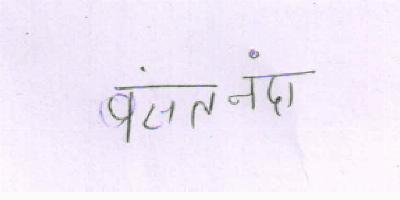 बंसल नंदा